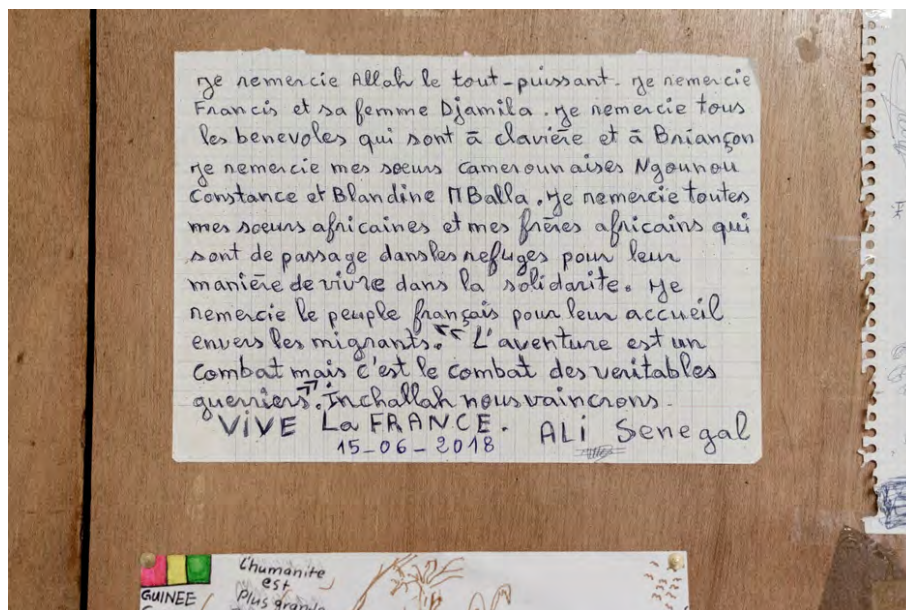 Je remercie Allah le tout-puissant. Je remercie
Francis et sa femme Djamila. Je remercie tous
les benevoles qui sont à clavière et à Briançon
Je remercie mes sœurs camerounaises Ngounou
Constance et Blandine MBalla. Je remercie toutes
mes sœurs africaines et mes frères africains qui
sont de passage dans les refuges pour leur
manière de vivre dans la solidarite. Je
remercie le peuple français pour leur accueil
envers les migrants. «L'aventure est un
combat mais c'est le combat des veritables
guerriers». Inchallah nous vaincrons.
VIVE La FRANCE. ALi Senegal
15-06-2018
L'humanité
est
GUINEE
Plus grande